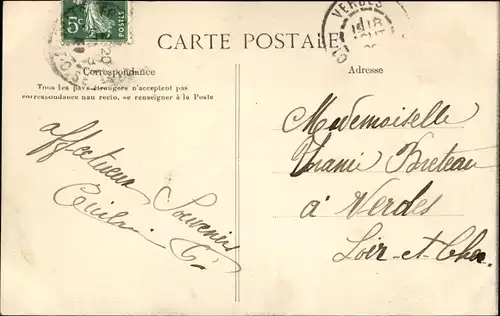 5c
POSTES
VERDES
AOUT
CARTE POSTALE
Correspondance
Adresse
Tous les pays étrangers n'acceptent pas
correspondance au recto, se renseigner à la Poste
affectueux Souvenirs
Mademoiselle
Breteau
à Verdes
Loir-et-Cher